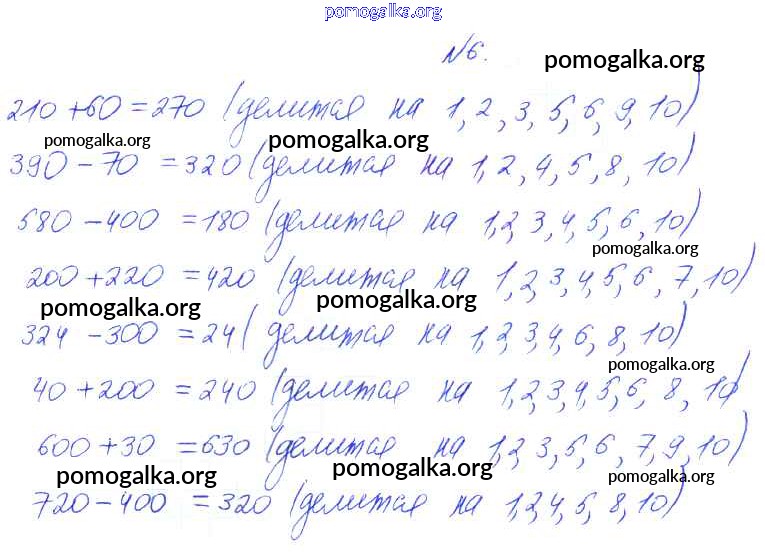 pomogalka.org
№6.
pomogalka.org
210 + 60 = 270 (делится на 1, 2, 3, 5, 6, 9, 10)
pomogalka.org pomogalka.org
390 - 70 = 320 (делится на 1, 2, 4, 5, 8, 10)
580 - 400 = 180 (делится на 1, 2, 3, 4, 5, 6, 10)
pomogalka.org
200 + 220 = 420 (делится на 1, 2, 3, 4, 5, 6, 7, 10)
pomogalka.org pomogalka.org
324 - 300 = 24 (делится на 1, 2, 3, 4, 6, 8, 10)
pomogalka.org
40 + 200 = 240 (делится на 1, 2, 3, 4, 5, 6, 8, 10)
600 + 30 = 630 (делится на 1, 2, 3, 5, 6, 7, 9, 10)
pomogalka.org pomogalka.org pomogalka.org
720 - 400 = 320 (делится на 1, 2, 4, 5, 8, 10)